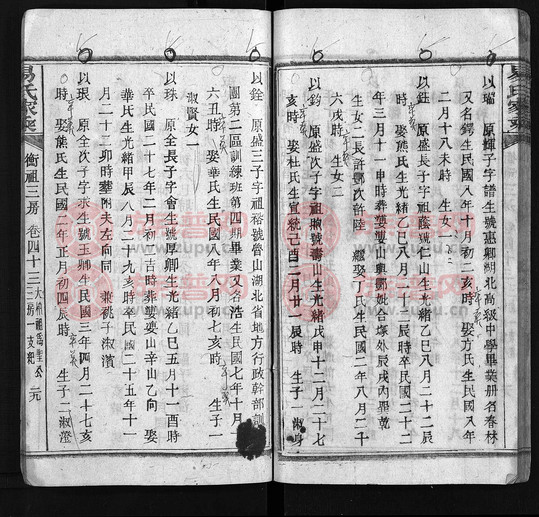 以瑠 原輝子字譜生號惠卿湖北高級中學畢業册名春林
又名鍔生民國八年十月初二亥時 娶方氏生民國八年
二月十八未時 生女二
以鈺 原盛長子字祖蔭號仁山生光緒乙巳八月二十二辰
時 娶熊氏生光緒乙巳八月二十二辰時卒民國二十二
年三月十一申時葬婆婆山與鄧妣合塚外辰戌內巽乾
生女二長許鄧次許陸 繼娶丁氏生民國二年八月二十
六戌時 生女二
以鈞 原盛次子字祖煦號壽山生光緒戊申十月二十七
亥時 娶杜氏生宣統己酉二月廿一辰時 生子一淑身
易氏家乘
以銓 原盛三子字祖裕號晉山湖北省地方行政幹部訓
團第二區訓練班第四期畢業又名浩生民國七年十月
六丑時 娶華氏生民國八年八月初七亥時 生子一
淑賢女一
以珠 原全長子字會生號厚卿生光緒乙巳五月十一酉時
卒民國二十七年二月初一吉時葬婆婆山辛山乙向 娶
華氏生光緒甲辰八月二十九亥時卒民國二十五年十一
月二十二卯時葬附夫左向同 兼祧子淑濱
以珢 原全次子字求生號玉卿生民國三年四月二十七亥
時 娶熊氏生民國二年正月初四辰時 生子一淑澄
易氏家乘
衡祖三房 卷四十三 三房一支紀 元